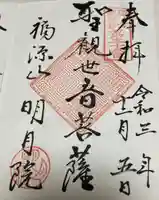 奉拝
令和三年
十二月五日
聖観世音菩薩
福源山
明月院